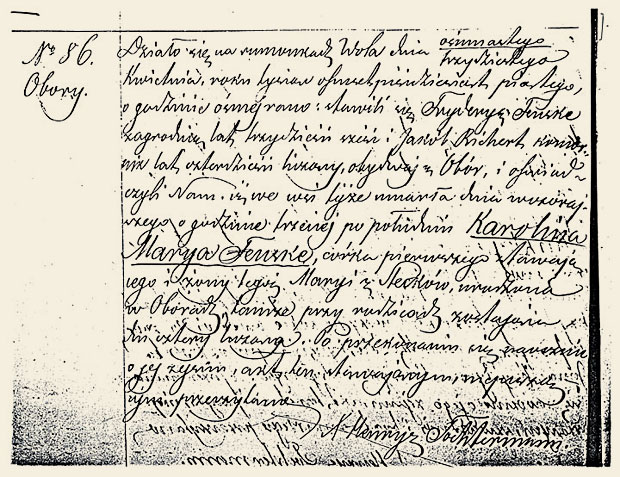 No 86.
Obory.
Działo się na rumunkach Wola dnia osiemnastego
trzydziestego
Kwietnia, roku tysiąc ośmset pięćdziesiąt piątego,
o godzinie ósmej rano: stawili się, Fryderyk Fenske
zagrodnik, lat trzydzieści sześć i Jakób Richert komor-
nik lat czterdzieści liczący, obydwaj z Obór, i oświad-
czyli Nam, iż we wsi tejże umarła dnia wczoraj-
szego o godzinie trzeciej po południu Karolina
Marya Fenske, córka pierwszego stawają-
cego i żony tegoż Maryi z Recków, urodzona
w Oborach, tamże przy rodzicach zostająca
dni cztery licząca. Po przekonaniu się naocznie
o jej zejściu, akt ten stawającym, niepiśmie-
nnym, przeczytano.
X. Henryk Tochtermann.